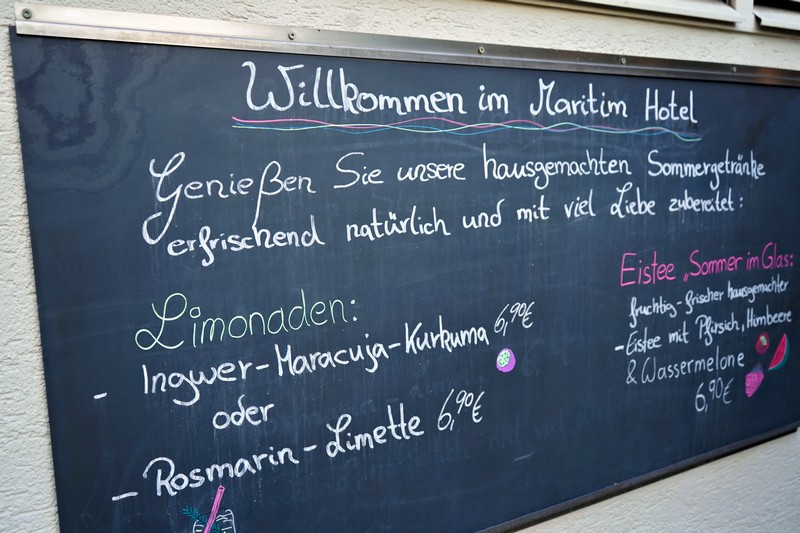 Willkommen im Maritim Hotel
Genießen Sie unsere hausgemachten Sommergetränke
erfrischend natürlich und mit viel Liebe zubereitet:
Limonaden:
- Ingwer-Maracuja-Kurkuma 6,90€
oder
- Rosmarin-Limette 6,90€
Eistee „Sommer im Glas:
fruchtig-frischer hausgemachter
- Eistee mit Pfirsich, Himbeere
& Wassermelone
6,90€